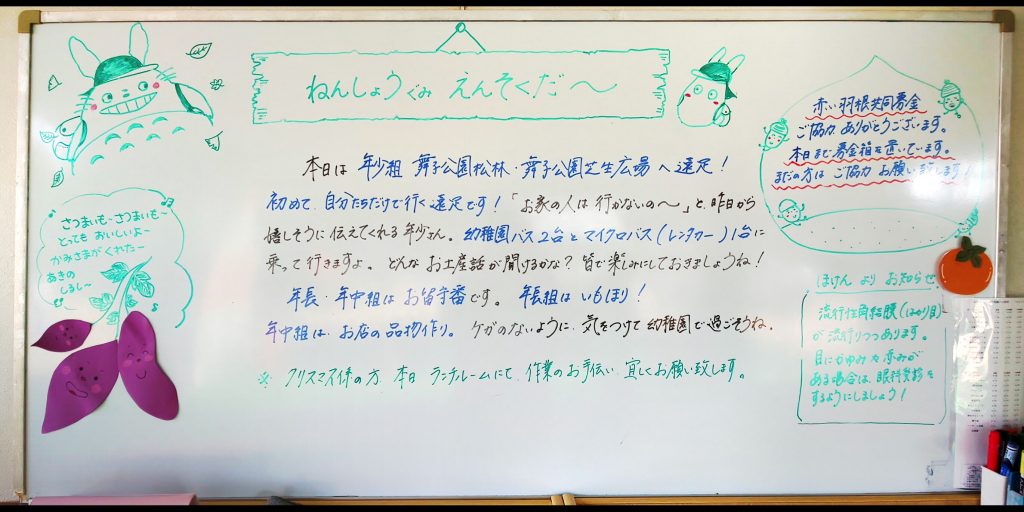 ねんしょうぐみ えんそくだ〜
本日は 年少組 舞子公園松林・舞子公園芝生広場 へ遠足！
初めて、自分たちだけで行く遠足です！「お家の人は 行かないの〜」と、昨日から
嬉しそうに 伝えてくれる 年少さん。幼稚園バス2台とマイクロバス(レンタカー)1台に
乗って行きますよ。どんな お土産話が聞けるかな？皆で楽しみにしておきましょうね！
年長・年中組は お留守番です。 年長組は いもほり！
年中組は、お店の品物作り。ケガのないように、気をつけて 幼稚園で過ごそうね。
※ クリスマス係の方、本日 ランチルームにて、作業のお手伝い、宜しくお願い致します。
さつまいも〜さつまいも〜
とっても おいしいよ〜
かみさまがくれたー
あきの
しるし〜
赤い羽根共同募金
ご協力 ありがとうございます。
本日まで募金箱を置いています。
まだの方は ご協力 お願い致します！
ほけん より お知らせ
流行性角結膜(はやり目)
が 流行りつつあります。
目にかゆみや赤みが
ある場合は、眼科受診を
するようにしましょう！